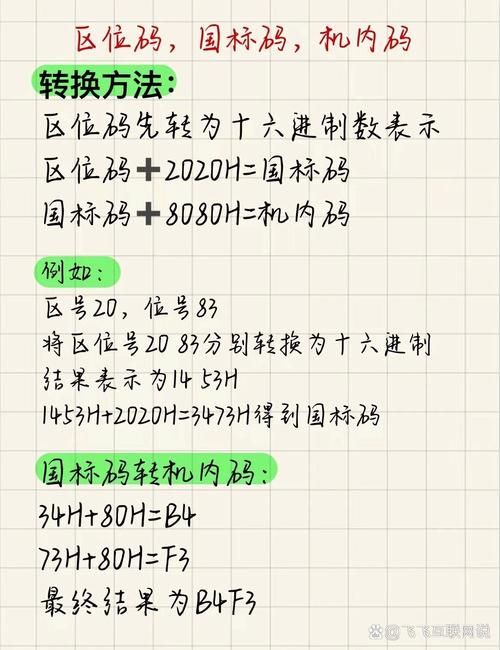 区位码，国标码，机内码
转换方法：
区位码先转为十六进制数表示
区位码➕2020H=国标码
国标码➕8080H=机内码
例如：
区号20，位号83
将区位号20 83分别转换为十六进制
结果表示为14 53H
1453H+2020H=3473H得到国标码
国标码转机内码：
34H+80H=B4
73H+80H=F3
最终结果为B4F3
飞飞互联网说